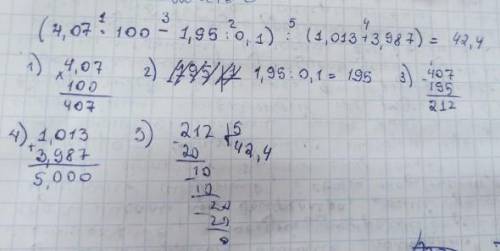 (4,07 · 100 - 1,95 : 0,1) : (1,013 + 3,987) = 42,4
1 3 2 5 4
1) 4,07
× 100
407
2) 1,95 : 0,1 = 195
3) - 407
195
212
4) 1,013
+ 3,987
5,000
5) - 212 | 5
20 42,4
- 10
10
- 20
20
0